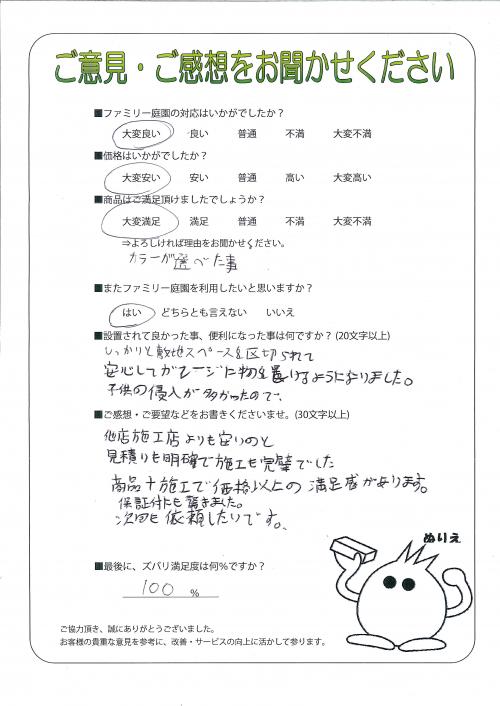 ご意見・ご感想をお聞かせください
■ファミリー庭園の対応はいかがでしたか？
大変良い 良い 普通 不満 大変不満
■価格はいかがでしたか？
大変安い 安い 普通 高い 大変高い
■商品はご満足頂けましたでしょうか？
大変満足 満足 普通 不満 大変不満
⇒よろしければ理由をお聞かせください。
カラーが選べた事
■またファミリー庭園を利用したいと思いますか？
はい どちらとも言えない いいえ
■設置されて良かった事、便利になった事は何ですか？(20文字以上)
しっかりと敷地スペースを区切られて
安心してガレージに物を置けるようになりました。
子供の侵入が多かったので、
■ご感想・ご要望などをお書きくださいませ。(30文字以上)
他店施工店よりも安いのと
見積りも明確で施工も完璧でした
商品＋施工で価格以上の満足感があります。
保証付にも驚きました。
次回も依頼したいです。
ぬりえ
■最後に、ズバリ満足度は何%ですか？
100 %
ご協力頂き、誠にありがとうございました。
お客様の貴重な意見を参考に、改善・サービスの向上に活かして参ります。